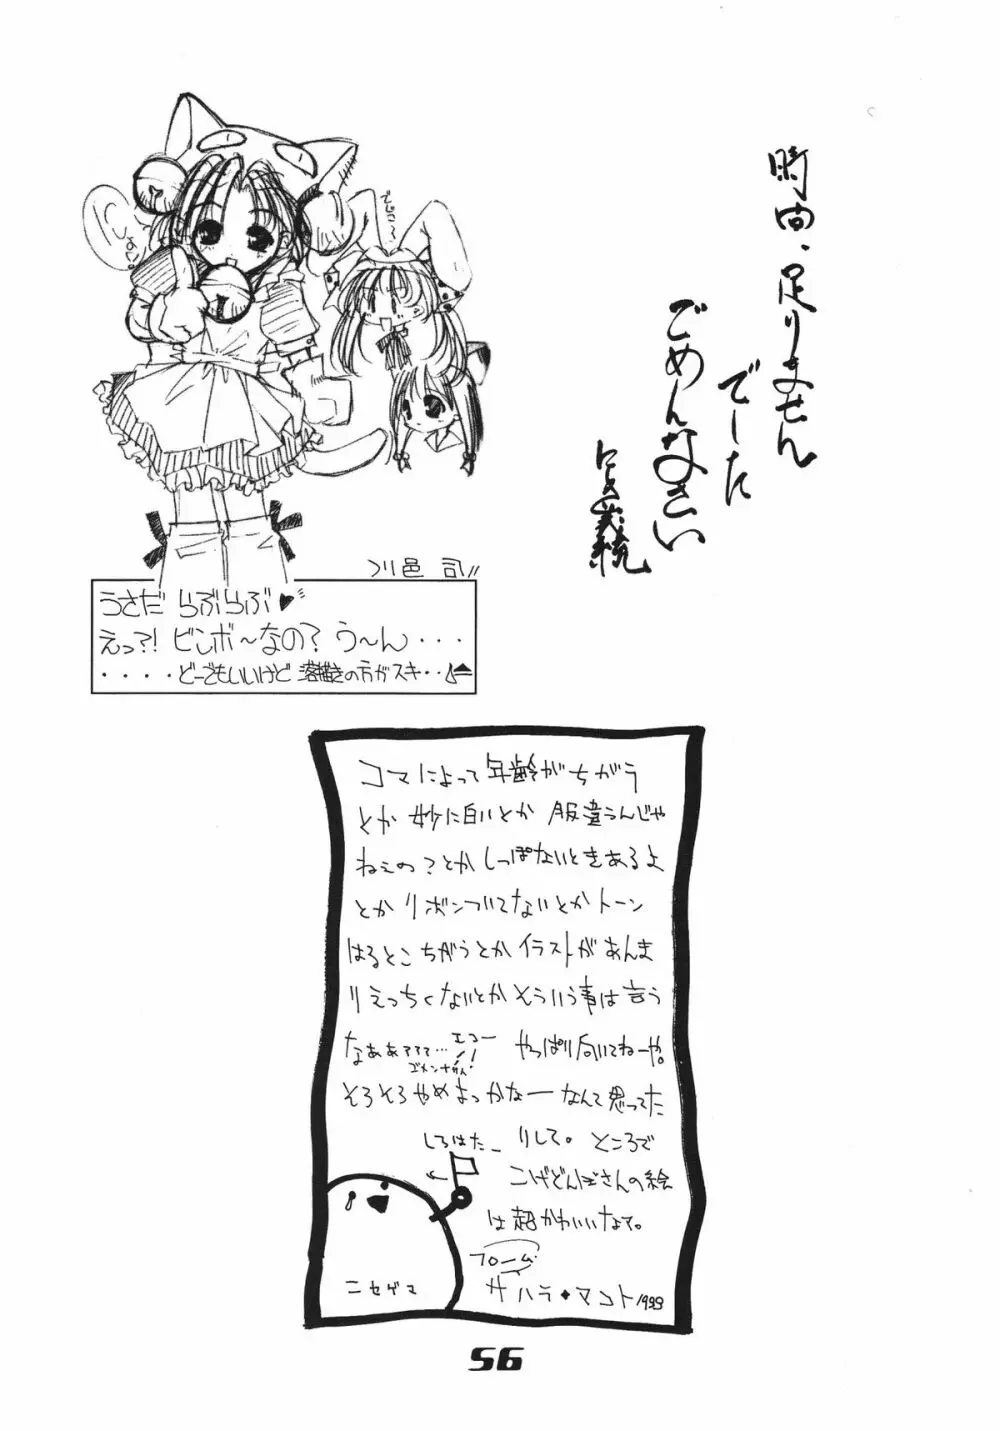 時間、足りません
でした
ごめんなさい
でじこ〜
しょぼ〜ん
川邑 司
うさだ らぶらぶ♥
えっ?! ビンボ〜なの? う〜ん・・・・
・・・・どーでもいいけど 落描きの方がスキ・・
コマによって年齢がちがう
とか 妙に白いとか 服違うんじゃ
ねぇの?とか しっぽないときあるよ
とか リボンついてないとか トーン
はるとこ ちがうとか イラストが あんま
りえっちくないとか そういう事は 言う
なぁあァァァ…エコー やっぱり向いてねーや。
ゴメンナサイ!
そろそろやめよっかなー なんて思ってた
りして。ところで
しろはたー
こげどんぼさんの絵
は超かわいいなァ。
フローム
サハラ◆マコト 1999
ニセゲマ
56